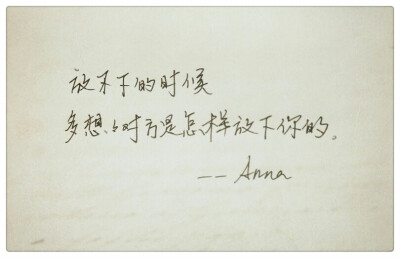 放不下的时候
多想想对方是怎样放下你的。
-- Anna